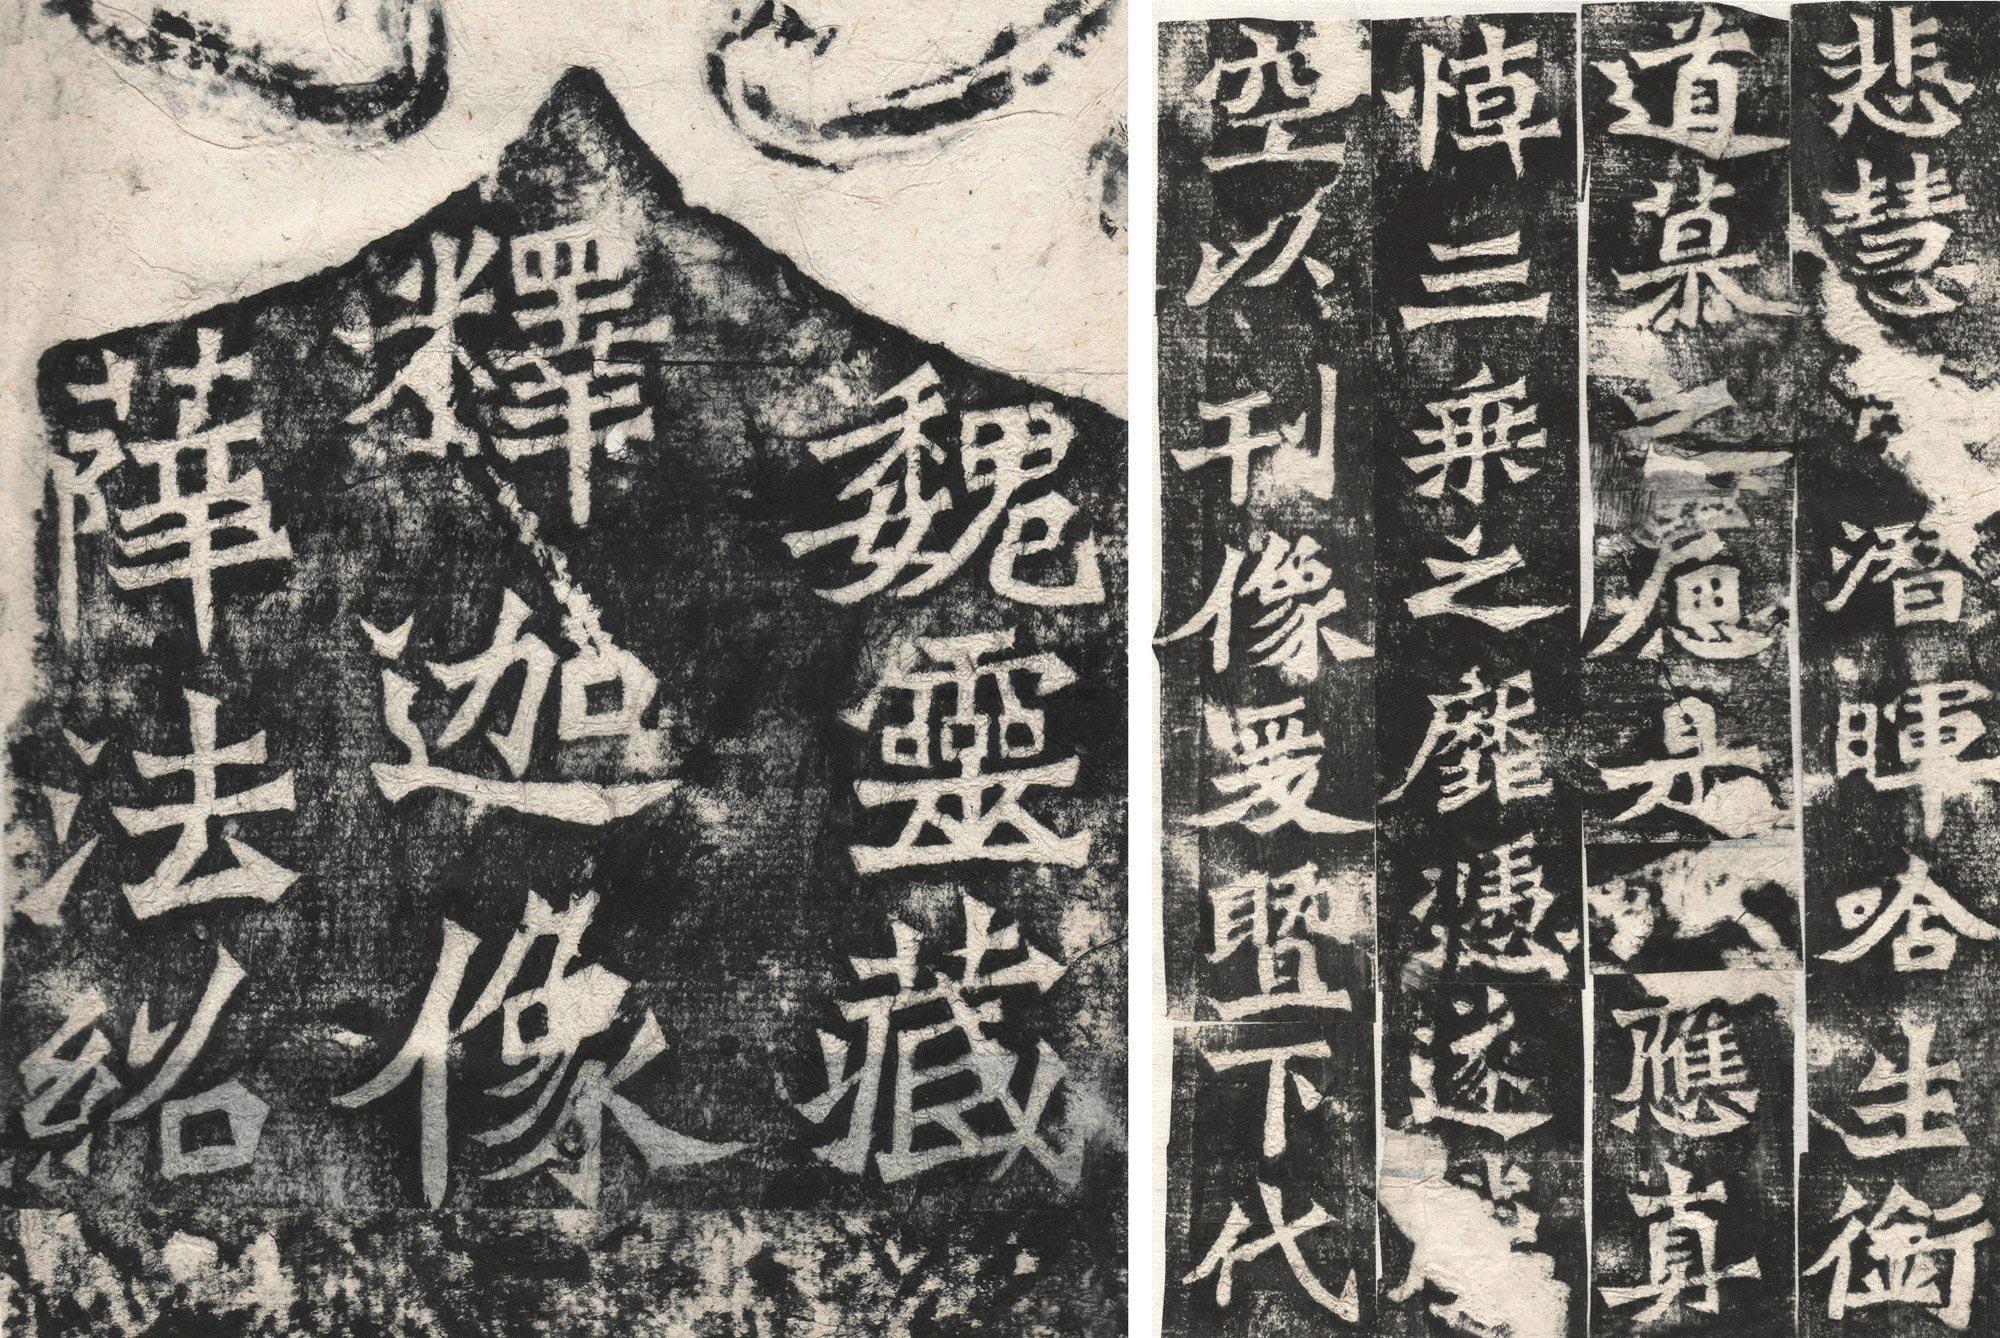 魏靈藏
釋迦像
薛法紹
悲慧潛暉啥生銜
道慕之是應真
悼三乘之靡憑遂
空以刊像爰暨下代